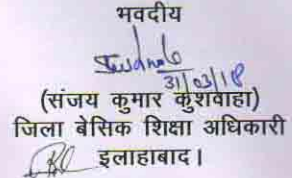 भवदीय
31/03/18
(संजय कुमार कुशवाहा)
जिला बेसिक शिक्षा अधिकारी
इलाहाबाद।